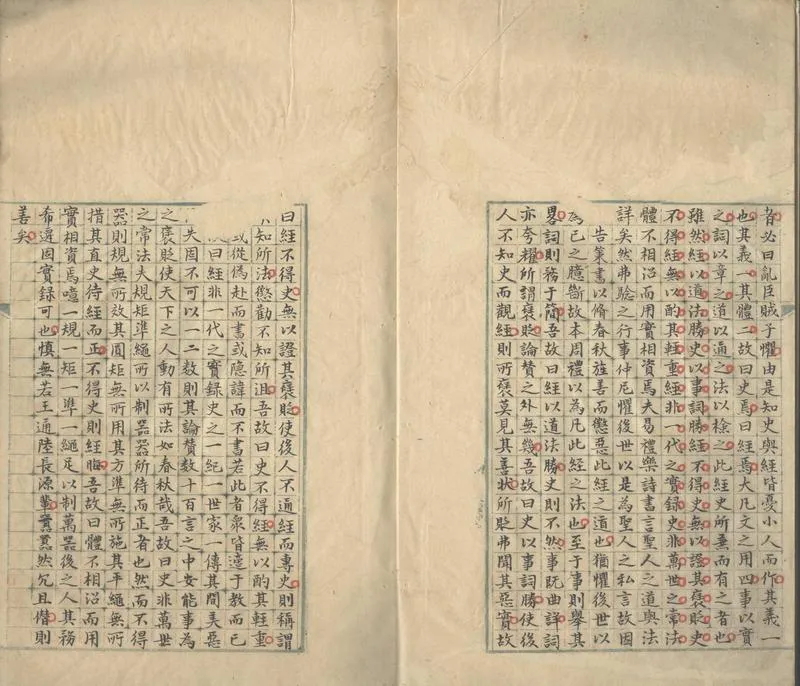 者必曰亂臣賊子懼由是知史與經皆憂小人而作其義一
也其義一其體二故曰史焉曰經焉大凡文之用四事以實
之詞以章之道以通之法以檢之此經史所兼而有之者也
雖然經以道法勝史以事詞勝經不得史無以證其褒貶史
不得經無以酌其輕重經非一代之實錄史非萬世之常法
體不相沿而用實相資焉夫易禮樂詩書言聖人之道與法
詳矣然弗驗之行事仲尼懼後世以是為聖人之私言故因
告策書以脩春秋旌善而懲惡此經之道也猶懼後世以
為己之臆斷故本周禮以為凡此經之法也至于事則舉其
畧詞則務于簡吾故曰經以道法勝史則不然事既曲詳詞
亦夸耀所謂褒貶論贊之外無幾吾故曰史以事詞勝使後
人不知史而觀經則所褒莫見其善狀所貶弗聞其惡實故
曰經不得史無以證其褒貶使後人不通經而專史則稱謂
知所法懲勸不知所沮吾故曰史不得經無以酌其輕重
或從偽赴而書或隱諱而不書若此者衆皆適于教而已
曰經非一代之實錄史之一紀一世家一傳其間美惡
失固不可以一二數則其論贊數十百言之中安能事為
之褒貶使天下之人動有所法如春秋哉吾故曰史非萬世
之常法夫規矩準繩所以制器器所待而正者也然而不得
器則規無所效其圓矩無所用其方準無所施其平繩無所
措其直史待經而正不得史則經晦吾故曰體不相沿而用
實相資焉噫一規一矩一準一繩足以制萬器後之人其務
希遷固實錄可也慎無若王通陸長源輩囂囂然冗且僭則
善矣